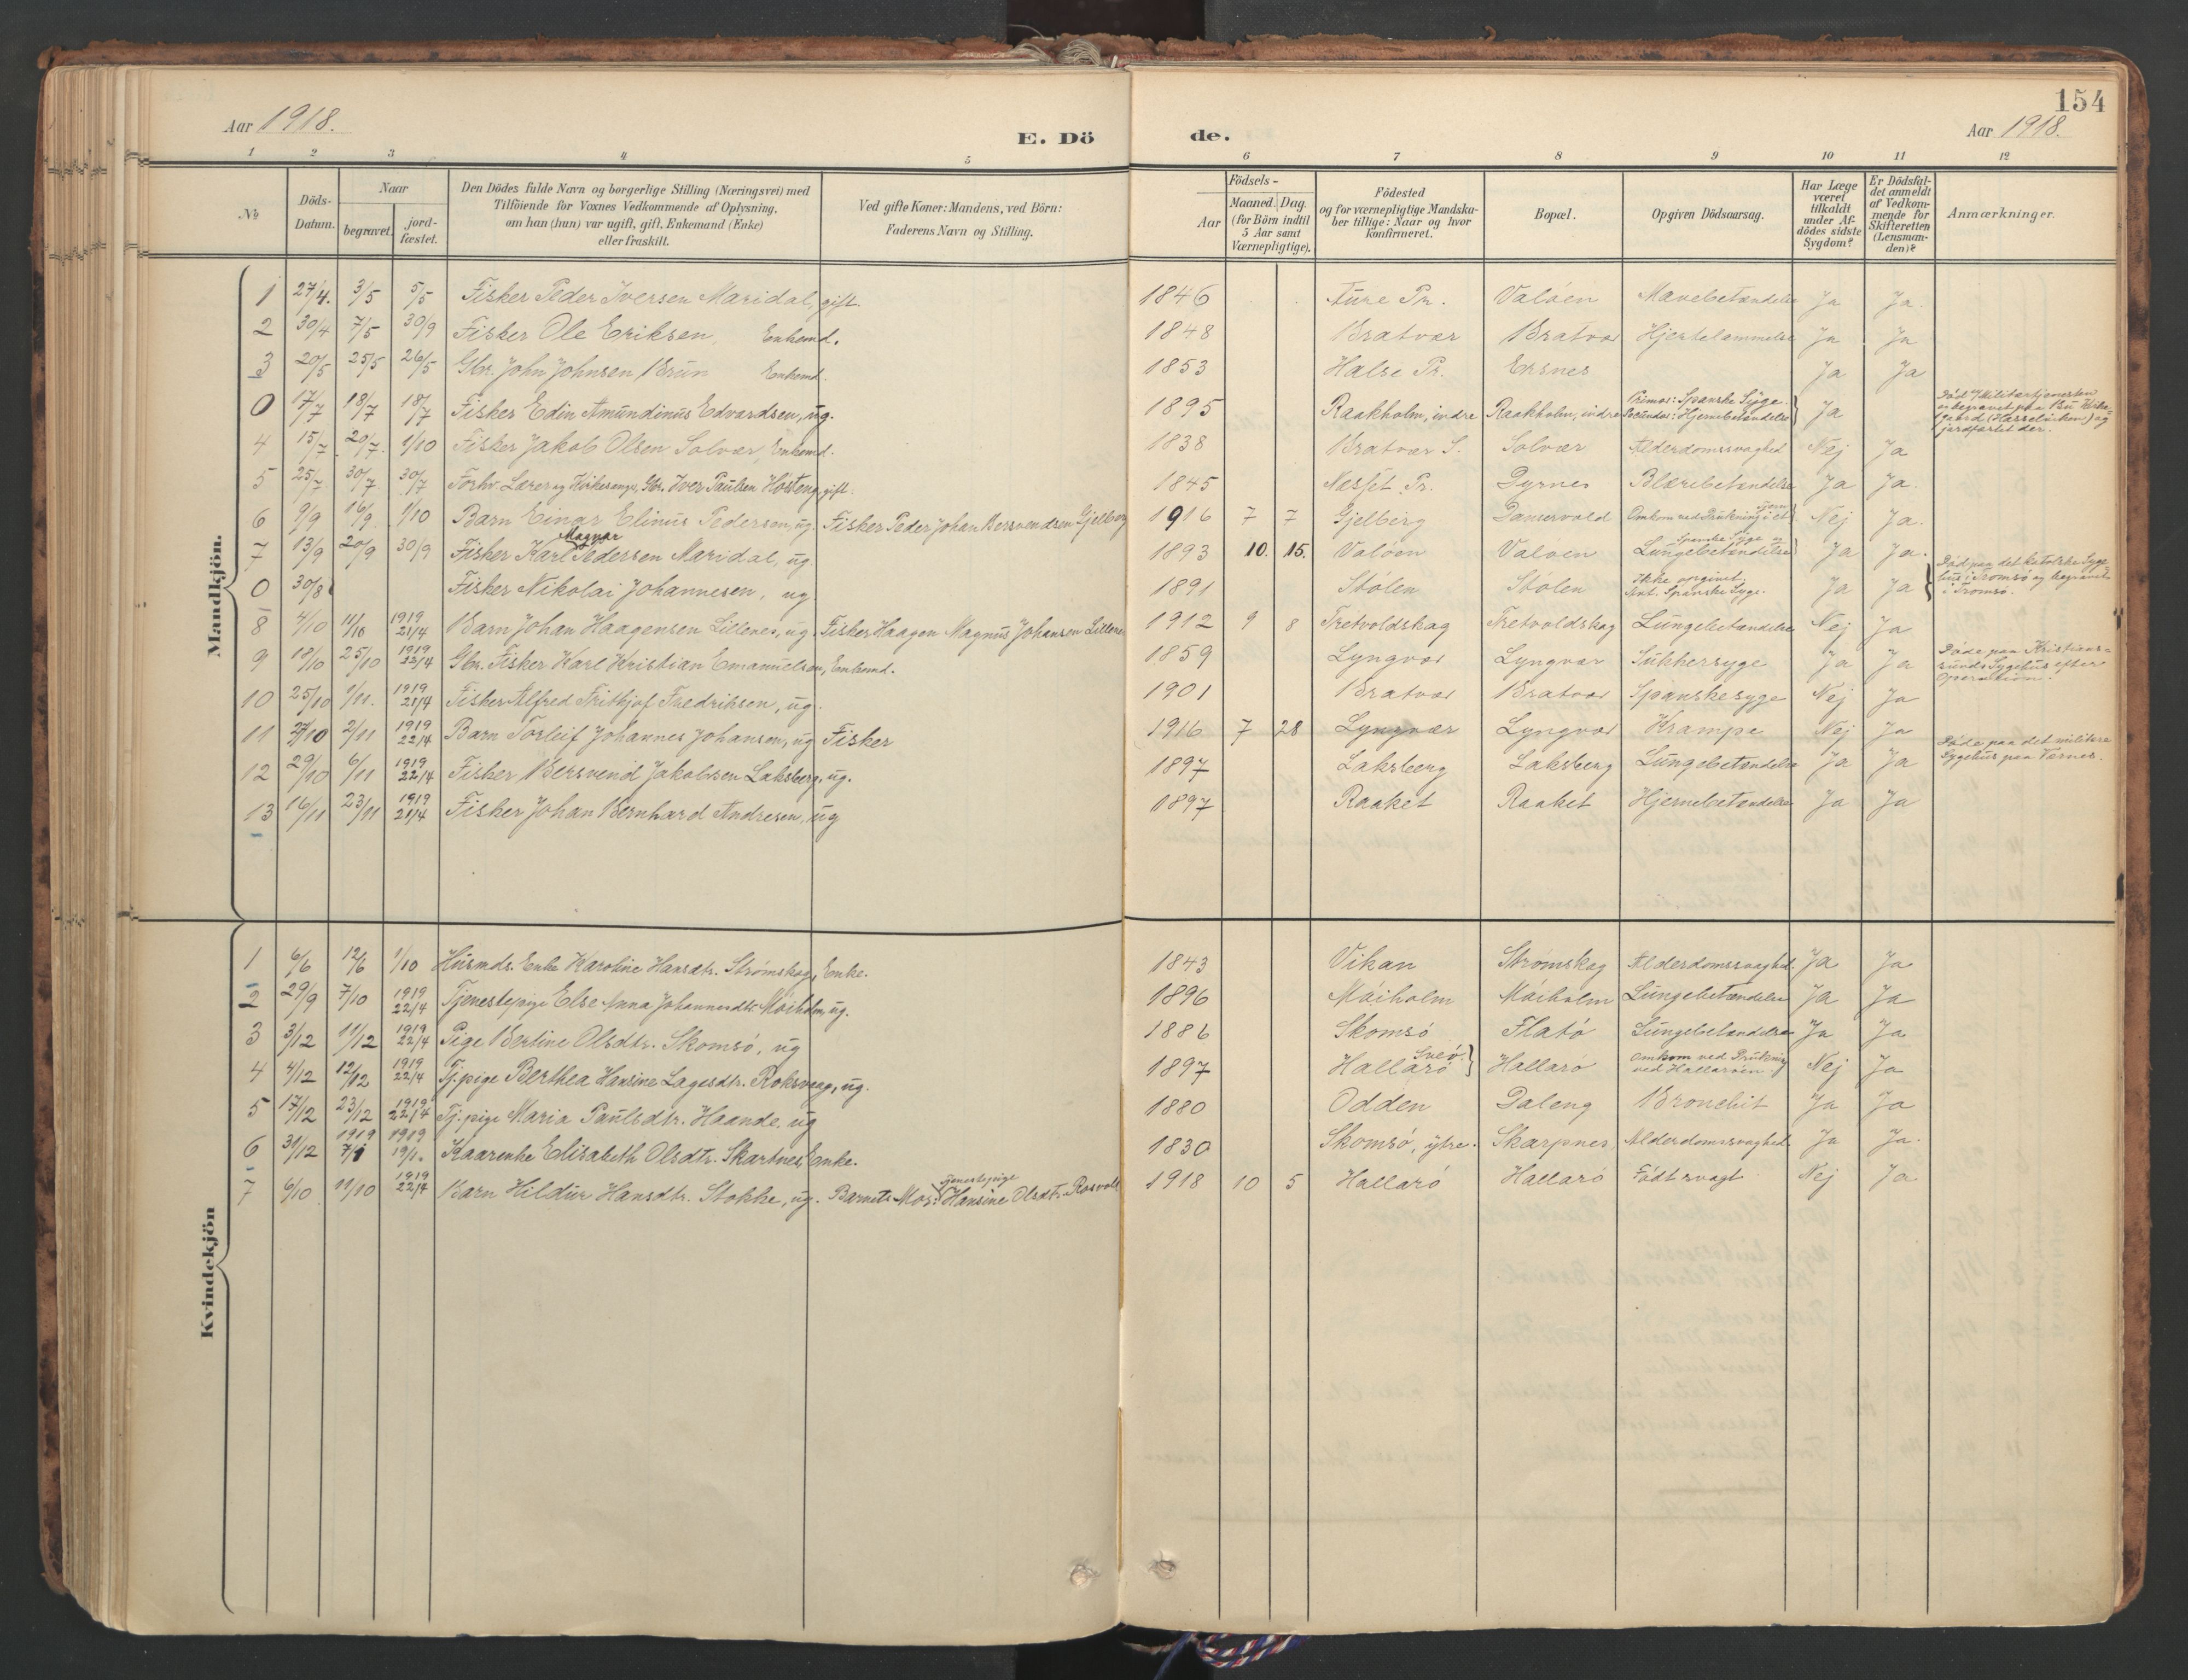 154
Aar 1918.
E. Dö de.
Aar 1918.
1 2 3 4 5 6 7 8 9 10 11 12
№
Döds-Datum.
Naar
begravet.
jord-fæstet.
Den Dödes fulde Navn og borgerlige Stilling (Næringsvei) med
Tilföiende for Voxnes Vedkommende af Oplysning,
om han (hun) var ugift, gift, Enkemand (Enke)
eller fraskilt.
Ved gifte Koner: Mandens, ved Börn:
Faderens Navn og Stilling.
Födsels-
Aar
Maaned. Dag.
(for Börn indtil
5 Aar samt
Værnepligtige).
Födested
og for værnepligtige Mandska-
ber tillige: Naar og hvor
konfirmeret.
Bopæl.
Opgiven Dödsaarsag.
Har Læge
været
tilkaldt
under Af-
dödes sidste
Sygdom?
Er Dödsfal-
det anmeldt
af Vedkom-
mende for
Skifteretten
(Lensman-
den)?
Anmærkninger.
Mandkjön.
1 27/4. 3/5 5/5 Fisker Peder Iversen Maridal, gift. 1846 Ture Pr. Valöen Mavebetændelse Ja Ja.
2 30/4 7/5 30/9 Fisker Ole Eriksen, Enkemd. 1848 Bratvær Bratvær Hjertelammelse Ja Ja
3 20/5 25/5 26/5 Gbr. John Johnsen Brun Enkemd. 1853 Halse Pr. Ersnes Ja Ja
0 17/7 18/7 18/7 Fisker Edin Amundinus Edvardsen, ug. 1895 Raakholm, indre Raakholm, indre Primos: Spanske Syge. Secundos: Hjernebetændelse Ja Död i Militærtjenesten er begravet paa Bu Kirkegaard og jordfæstet der.
4 15/7 20/7. 1/10 Fisker Jakob Olsen Solvær, Enkemd. 1838 Bratvær S. Solvær Alderdomssvaghed Nej Ja
5 25/7 30/7 30/7 Forhv. Lærer og Kirkesanger, Gbr. Iver Paulsen Hösteng, gift. 1845 Nesset Pr. Dyrnes Blærebetændelse Ja Ja.
6 9/9 16/9 1/10 Barn Einar Elinus Pedersen, ug. Fisker Peder Johan Bersvendsen Gjelberg 1916 7 7 Gjelberg Damvold Omkom ved Drukning i et Tjern Nej Ja.
7 13/9 20/9 30/9 Fisker Karl Magnar Pedersen Maridal, ug. 1893 10. 15. Valöen Valöen Spanske Syge og Lungebetændelse Ja Ja.
0 30/8 Fisker Nikolai Johannesen, ug. 1891 Stölen Stölen Ikke opgivet. Ant. Spanske Syge. Ja Ja Död paa det katolske Sygehus i Tromsö og begravet i Tromsö.
8 4/10 11/10 1919 21/4 Barn Johan Haagensen Lillenes, ug. Fisker Haagen Magnus Johansen Lillenes 1912 9 8 Tretvoldskag Tretvoldskag Lungebetændelse Nej Ja
9 18/10 25/10 1919 23/4 Gbr. Fisker Karl Kristian Emanuelsen, Enkemd. 1859 Lyngvær Lyngvær Sukkersyge Ja Ja Döde paa Kristianssunds Sygehus efter Operation.
10 25/10 1/11. 1919 21/4 Fisker Alfred Frithjof Fredriksen, ug. 1901 Bratvær Bratvær Spanskesyge Nej Ja
11 27/10 2/11 1919 22/4 Barn Torleif Johannes Johansen, ug. Fisker 1916 7 28 Lyngvær Lyngvær Krampe Nej Ja
12 29/10 6/11 1919 22/4 Fisker Bersvend Jakobsen Laksberg, ug. 1897 Laksberg Laksberg Lungebetændelse Ja Ja Döde paa det militære Sygehus paa Værnes.
13 16/11 23/11 1919 21/4 Fisker Johan Bernhard Andresen, ug 1897 Raaket Raaket Hjernebetændelse Ja Ja
Kvindekjön
1 6/6 12/6 1/10 Husmds. Enke Karoline Hansdtr. Strömskag, Enke. 1843 Vikan Strömskag Alderdomssvaghed. Ja Ja
2 29/9 7/10 1919 22/4 Tjenestepige Else Anna Johannesdtr. Möiholm, ug. 1896 Möiholm Möiholm Lungebetændelse Ja Ja
3 3/12 11/12 1919 22/4 Pige Bertine Olsdtr. Skomsö, ug 1886 Skomsö Flatö Lungebetændelse Ja Ja
4 4/12 12/12 1919 22/4 Tj.pige Berthea Hansine Lagesdtr. Roksvaag, ug. 1897 Sveö Hallarö Hallarö Omkom ved Drukning ved Hallaröen. Nej Ja
5 17/12 23/12 1919 22/4 Tj.pige Maria Paulsdtr. Haande, ug 1880 Odden Daleng Bronchit Ja Ja
6 31/12 1919 7/1 1919 19/10 Kaarenke Elisabeth Olsdtr. Skarpnes, Enke. 1830 Skomsö, ytre. Skarpnes, Alderdomssvaghed Ja Ja.
7 6/10 11/10 1919 22/4 Barn Hildur Hansdtr. Stokke, ug. Barnets Mor: Tjenestepige Hansine Olsdtr. Rosvoll 1918 10 5 Hallarö Hallarö Födt svagt Nej Ja